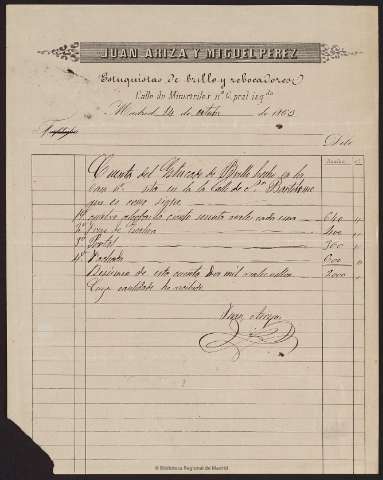 JUAN ARIZA Y MIGUEL PEREZ
Estuquistas de brillo y revocadores
Calle de nº 6, pral izqda
Madrid 14 de octubre de 1863
Debe
Cuenta del Estucado de Brillo hecho en la
casa nº sita en la Calle de Sn Bartolomé
que es como sigue
1º cuatro a ciento sesenta reales cada una 640
2º 400
3º Portal 300
4º
Resumen de esta cuenta Dos mil reales vellon 2000
Cuya cantidad he recibido
Juan Ariza
© Biblioteca Regional de Madrid